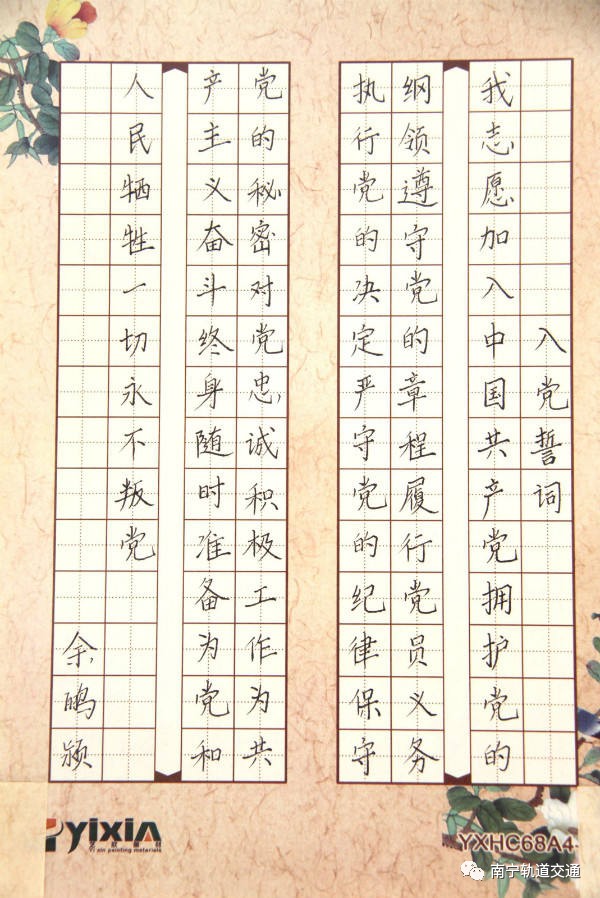 入党誓词
我志愿加入中国共产党拥护党的
纲领遵守党的章程履行党员义务
执行党的决定严守党的纪律保守
党的秘密对党忠诚积极工作为共
产主义奋斗终身随时准备为党和
人民牺牲一切永不叛党
余鸣
yixin
Yi xin painting materials
YXHC68A4
南宁轨道交通